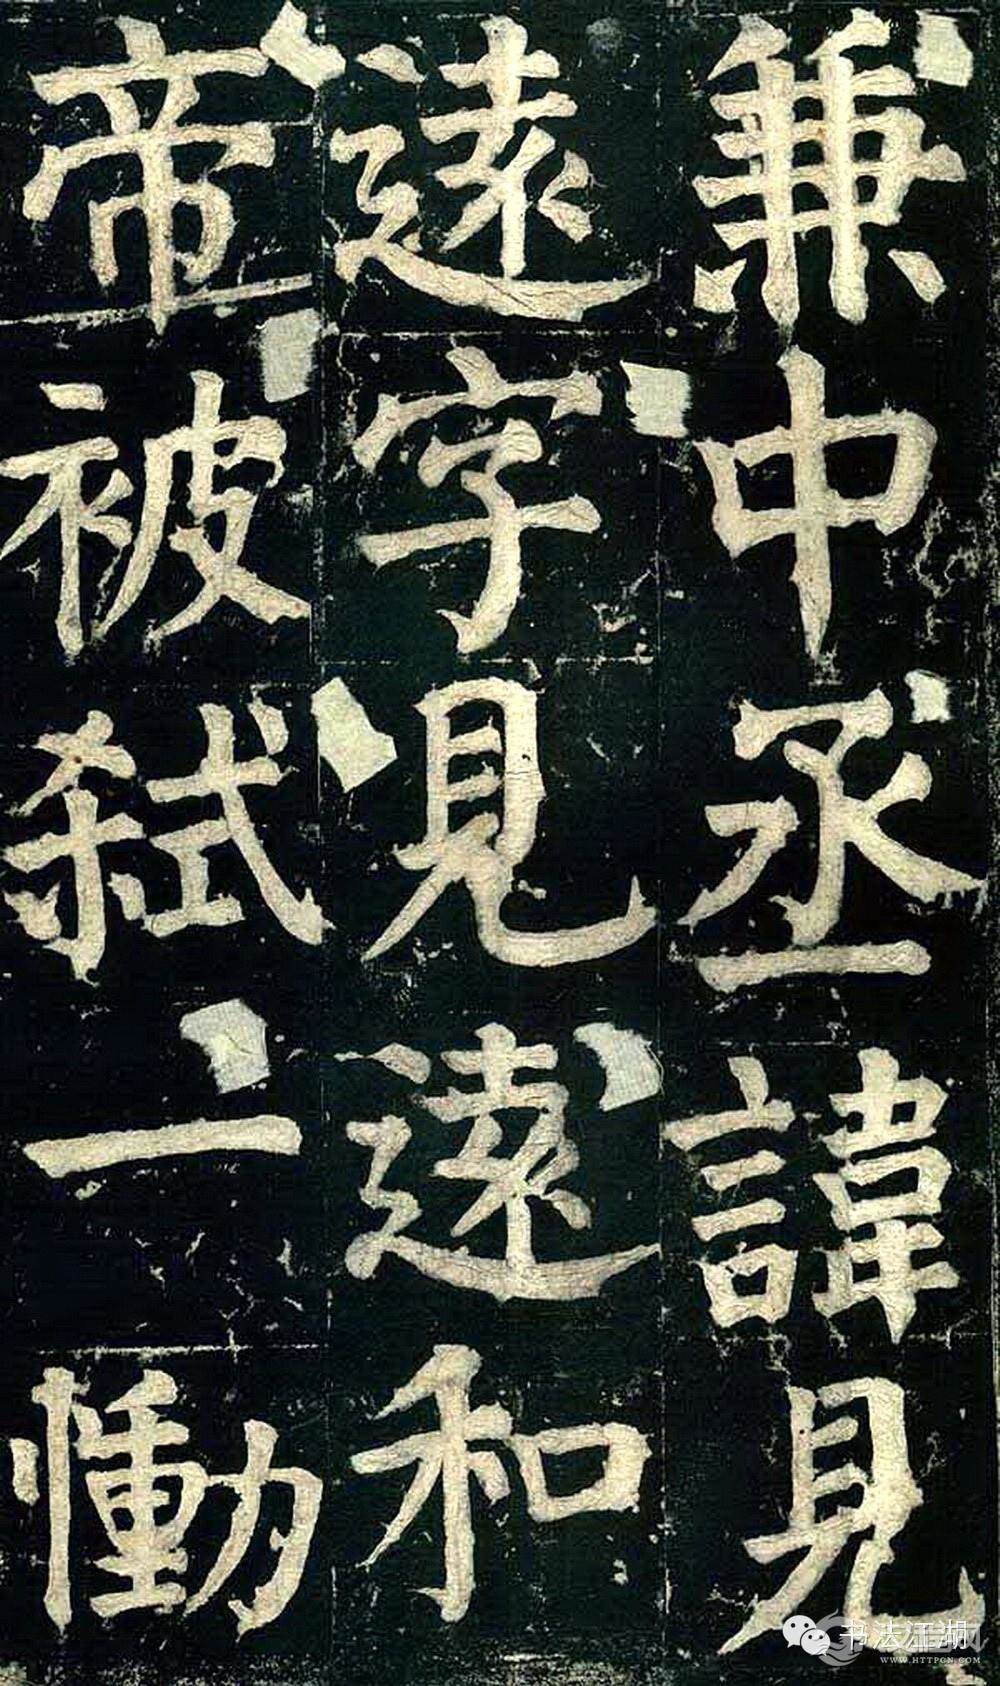 兼中丞諱見
遠字見遠和
帝被弑一慟
书法江湖
WWW.HTTPCN.COM